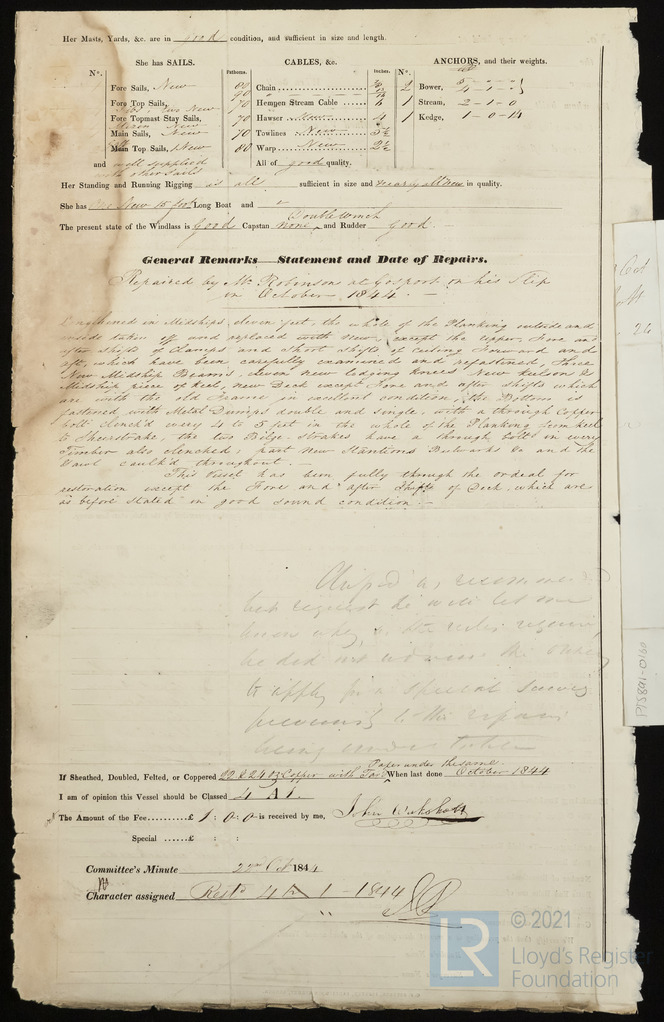 Her Masts, Yards, &c. are in good condition, and sufficient in size and length.
She has SAILS. CABLES, &c. ANCHORS, and their weights.
N°. Fathoms. Inches. N°.
Fore Sails, New Chain 2 Bower,
Fore Top Sails, New 70 Hempen Stream Cable 6 1 Stream, 2-1-0
Fore Topmast Stay Sails, 70 Hawser New 4 1 Kedge, 1-0-14
Main Sails, New 70 Towlines New 5½
Main Top Sails, New 80 Warp New 2½
and well supplied All of good quality.
with other Sails
Her Standing and Running Rigging is all sufficient in size and nearly all New in quality.
She has One New 15 foot Long Boat and
Double Winch
The present state of the Windlass is Good Capstan none, and Rudder good.
General Remarks Statement and Date of Repairs.
Repaired by Mr. Robinson at Gosport on his Slip
in October 1844. —
Lengthened in Midships, eleven feet, the whole of the Planking outside and
inside taken off and replaced with New, except the Upper, Fore and
after Shifts of Clamps and Short Shifts of Ceiling Forward and
aft, which have been carefully examined and refastened, Three
New Midship Beams, eleven new lodging knees New Kelson &
Midship piece of keel, new Deck except Fore and after shifts which
are with the old Frame in excellent condition, the Bottom is
fastened with Metal Dumps double and single, with a through Copper
bolt Clench'd every 4 to 5 feet in the whole of the Planking from keel
to Sheerstrake, the two Bilge Strakes have a through bolt in every
Timber also clenched, part New Stantions Bulwarks &c and the
Vessel Caulk'd throughout. —
This Vessel has been fully through the ordeal for
restoration except the Fore and after Shifts of Deck which are
as before stated in good sound condition. —
but request he will let me
know why, as the rules require,
he did not advise the Owner
to apply for a Special Survey
previously to the repairs
being undertaken
Paper under the same
If Sheathed, Doubled, Felted, or Coppered 22 & 24 oz Copper with When last done October 1844
I am of opinion this Vessel should be Classed 4 A 1.
The Amount of the Fee.........£ 1 : 0 : 0 is received by me, John
Special ......£ : :
Committee's Minute 22nd Oct 1844
Character assigned Restd 1 - 1844
Oct
26
© 2021
LR
Lloyd's Register
Foundation